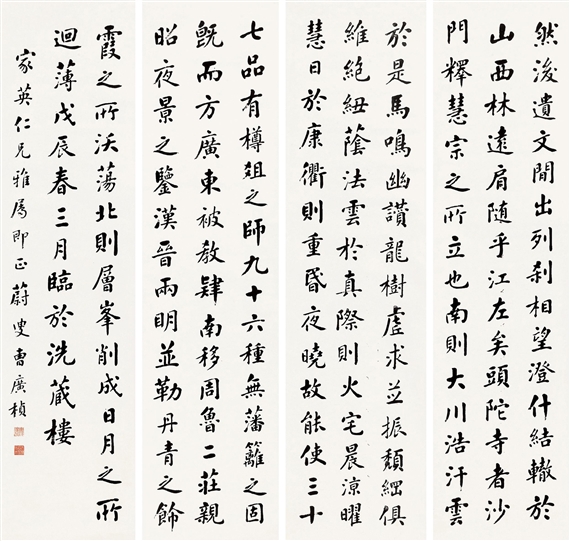 然後遺文間出列刹相望澄什結轍於
山西林遠肩隨乎江左矣頭陀寺者沙
門釋慧宗之所立也南則大川浩汗雲
於是馬鳴幽讚龍樹虛求並振頹綱俱
維絕紐蔭法雲於真際則火宅晨涼曜
慧日於康衢則重昏夜曉故能使三十
七品有樽俎之師九十六種無藩籬之固
既而方廣東被教肆南移周魯二莊親
昭夜景之鑒漢晉兩明並勒丹青之飾
霞之所沃蕩北則層峯削成日月之所
迴薄戊辰春三月臨於洗蔵樓
家英仁兄雅屬即正蔚叟曹廣楨